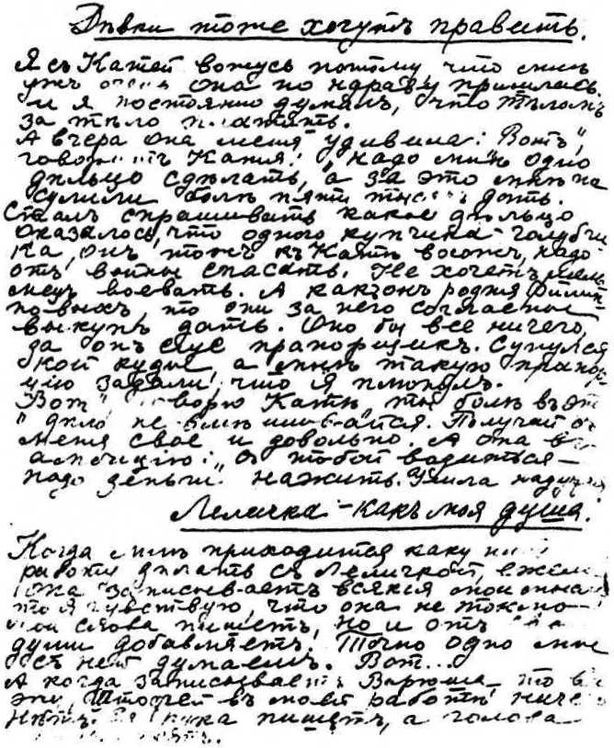 Дѣвки тоже хотутъ править.
Я съ Катей вожусь потому что мнѣ
ужъ она по ндраву пришлась.
и я постоянно думалъ, что тѣломъ
за тѣло платятъ.
А вчера она меня удивила: Вотъ",
говоритъ Катя: "надо мнѣ одно
дѣльцо сдѣлать, а за это мнѣ на
сулили болѣ пяти тысячъ дать.
Сталъ спрашивать какое дѣльцо
оказалось, что одного купчика-голубчи
ка, онъ тожъ къ Катѣ вхожъ, надо
отъ войны спасать. Не хочетъ мѣл
мецъ воевать. А какъ онъ родня Филип
повыхъ, то они за него согласны
выкупъ дать. Оно бы все ничего,
да онъ еще прапорщикъ. Сунулся
кой куды, а мнѣ такую прапор
цію задали, что я плюнулъ.
"Вотъ" говорю Катѣ ты болѣ въ эт
дѣло не вмѣшивайся. Получай съ
меня свое и довольно. А она въ
анбицію: "съ тобой водиться —
надо деньги нажить. Ушла надутая
Леличка — какъ моя душа.
Когда мнѣ приходится каку
работу дѣлать съ Леличкой, ежели
она записываетъ всякія мои
то я чувствую, что она не токмо
мои слова пишетъ, но и отъ
души добавляетъ. Точно одно мы
съ ней думаемъ. Вот...
А когда записываетъ Варюша, то
въ моей работѣ ниче
нѣтъ. рука пишетъ, а голова